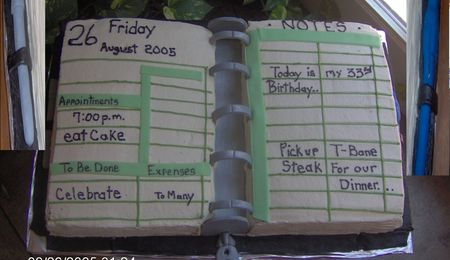 26 Friday
August 2005
Appointments
7:00 p.m.
eat Cake
To Be Done
Expenses
Celebrate
To Many
· NOTES ·
Today is my 33rd
Birthday..
Pick up T-Bane
Steak For our
Dinner...